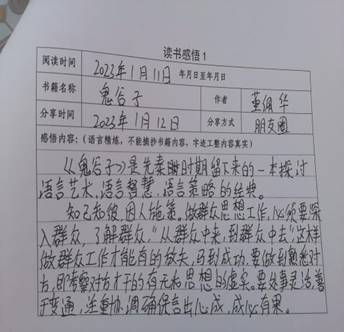 读书感悟1
阅读时间 2023年1月11日 年月日至年月日
书籍名称 鬼谷子 作者 董佩华
分享时间 2023年1月12日 分享方式 朋友圈
感悟内容：（语言精炼，不能摘抄书籍内容，字迹工整内容真实）
《鬼谷子》是先秦时期留下来的一本探讨
语言艺术，语言智慧，语言策略的经典。
知己知彼，因人施策。做群众思想工作，必须要深
入群众，了解群众，“从群众中来，到群众中去”这样
做群众工作才能有的放矢，马到成功。要做到熟悉对
方，即考察对方才干的有无和思想的虚实。要处事灵活，善
于变通，注重协调，确保言出必成，成必有果。